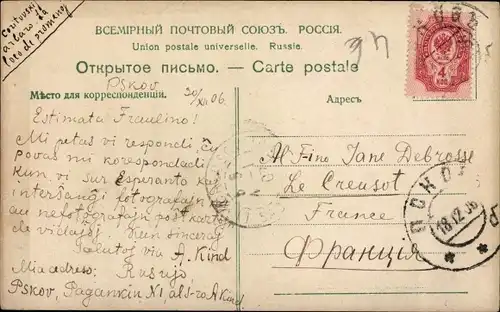 ВСЕМІРНЫЙ ПОЧТОВЫЙ СОЮЗЪ. РОССІЯ.
Union postale universelle. Russie.
Открытое письмо. — Carte postale
Pskov
Мѣсто для корреспонденціи.
20/XII 06.
Адресъ
Estimata Fraulino!
Mi petas vi respondi, ĉu
povas mi korespondadi
kun vi sur Esperanto kaj
interŝanĝi fotografajn
au nefotografajn post kartoj
de vidajoj. Kun sinceraj
Salutoj via A. Kind
Mia adreso: Rusujo
Pskov, Pagankin N1, al s-ro A Kind
Al F-ino Jane Debrosse
Le Creusot
France
Франція
4
ПСКОВ
18.12.06